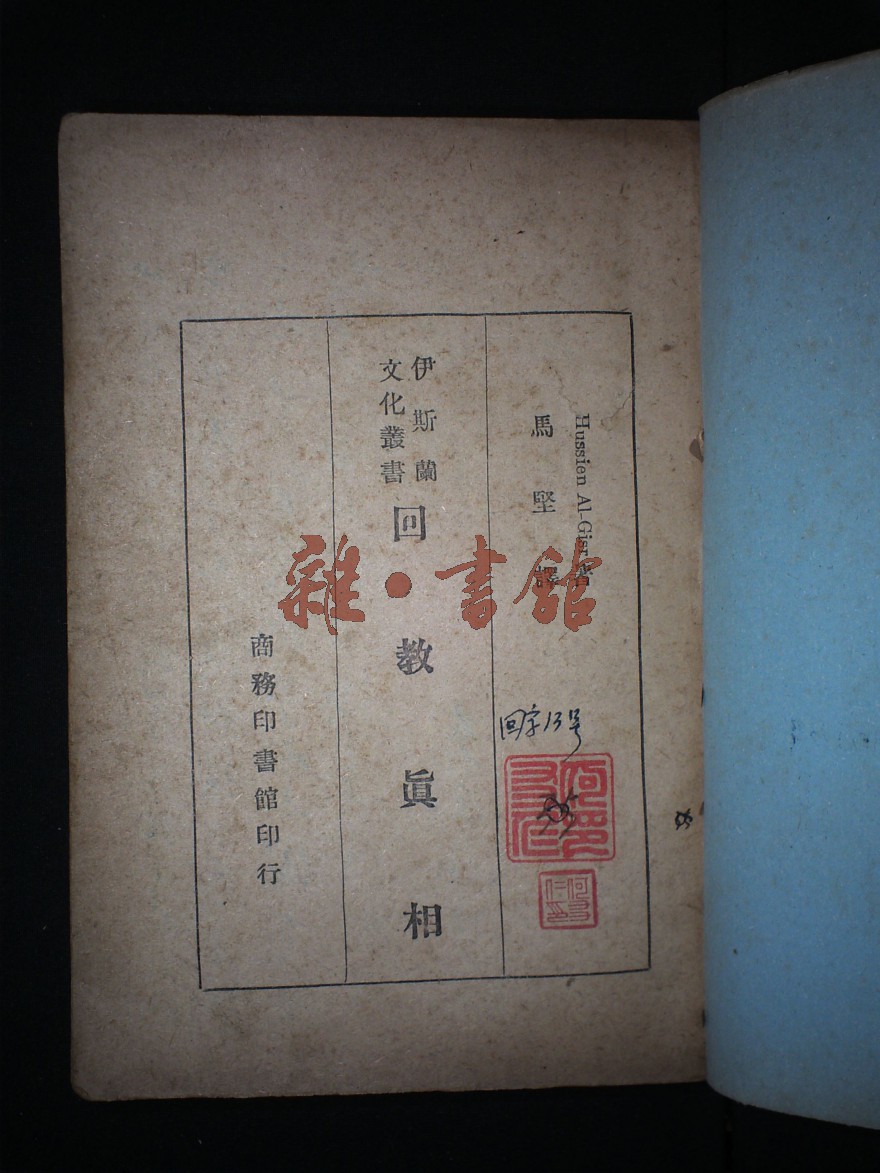 Hussien Al-Gisr著
馬堅譯
伊斯蘭
文化叢書
回教眞相
商務印書館印行
回字13号
雜·書館